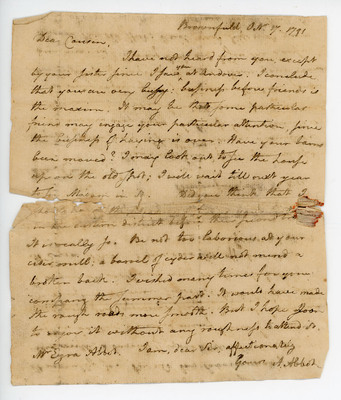 Brownfield Oct. 7. 1791
Dear Cousin,
I have not heard from you, except
by your sister since I saw yo. at Andover. I conclude
that you are very bussy: business before friends is
the maxim. It may be that some particular
friend may engage your particular attention, since
the business of haying is over. Have your barns
been moved? I may look out to see the house
up on the old spot; I will wait till next year
to in it. Did you think that I
It is really so. Be not too laborious at your
cider mill; a barrel of cyder will not mend a
broken back. I wished many times for your
company the summer past. It would have made
the rough roads more smooth. But I hope soon
to enjoy it without any roughness to attend it.
Mr Ezra Abbot. I am, dear Sir, affectionately
Yours A. Abbot